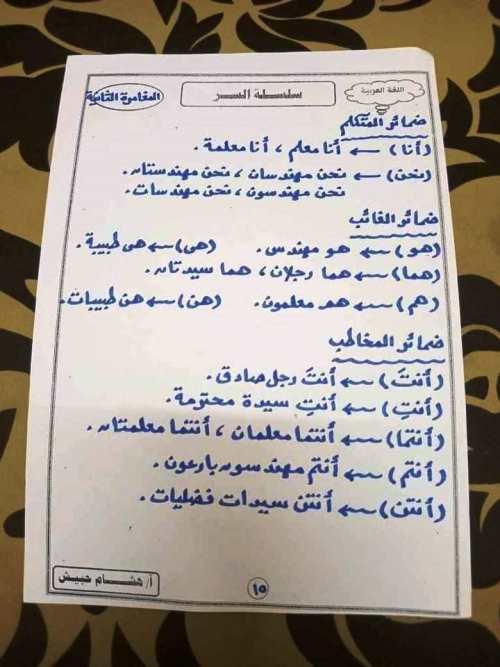 اللغة العربية
سلسلة السر
المغامرة الثانية
ضمائر المتكلم
(أنا) ← أنا معلم، أنا معلمة.
(نحن) ← نحن مهندسان، نحن مهندستان.
نحن مهندسون، نحن مهندسات.
ضمائر الغائب
(هو) ← هو مهندس. (هى) ← هى طبيبة.
(هما) ← هما رجلان، هما سيدتان.
(هم) ← هم معلمون. (هن) ← هن طبيبات.
ضمائر المخاطب
(أنتَ) ← أنتَ رجل صادق.
(أنتِ) ← أنتِ سيدة محترمة.
(أنتما) ← أنتما معلمان، أنتما معلمتان.
(أنتم) ← أنتم مهندسون بارعون.
(أنتن) ← أنتن سيدات فضليات.
١٥
أ/ هشام حبيش